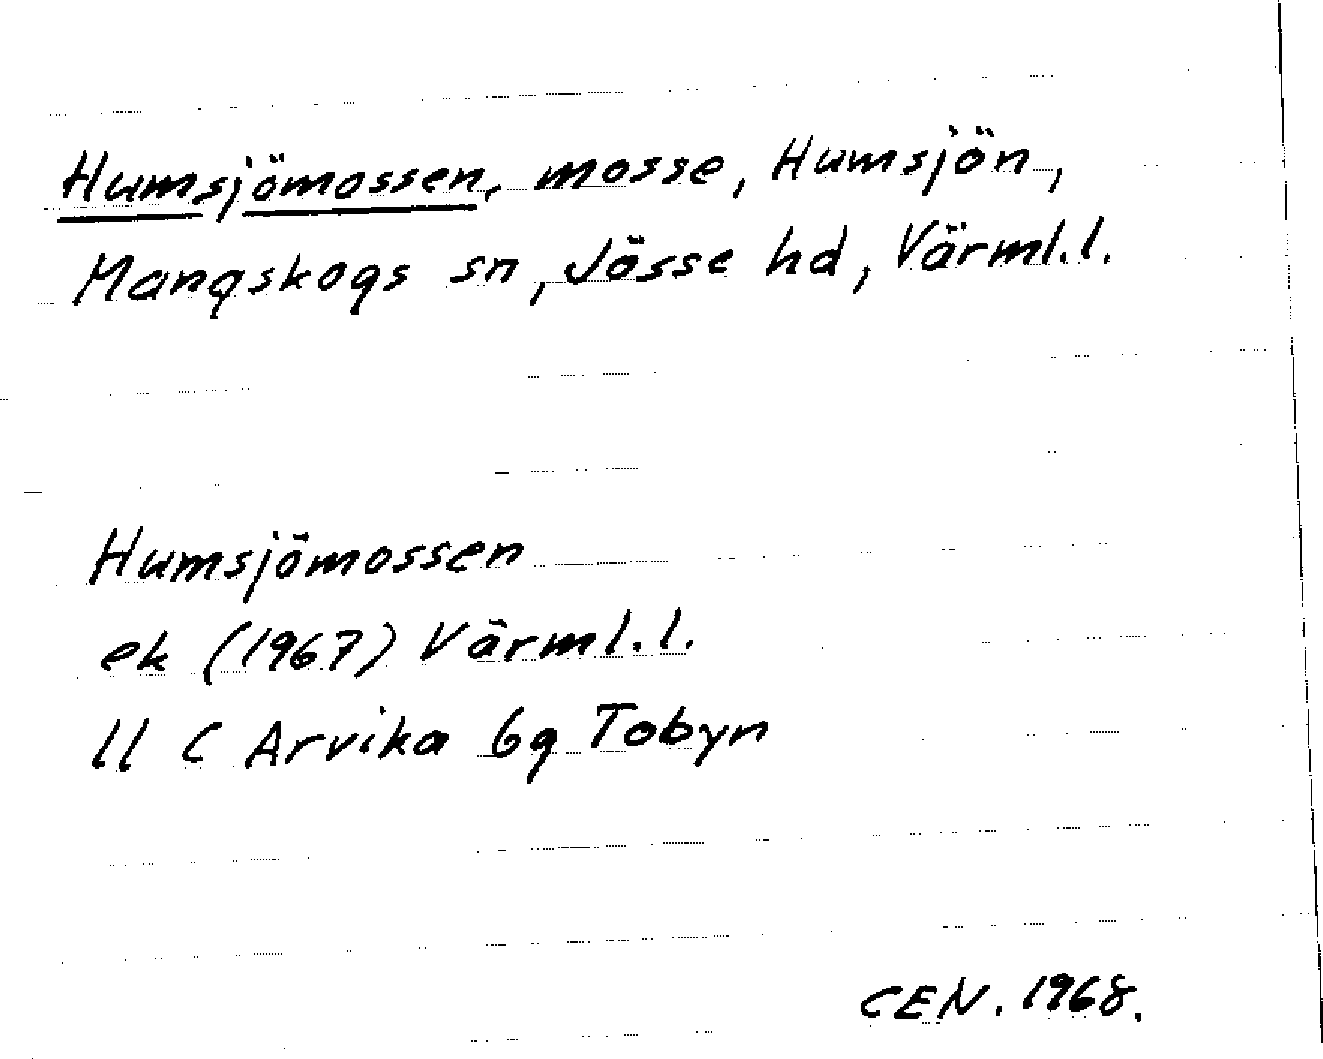 Humsjömossen, mosse, Humsjön,
Mangskogs sn, Jösse hd, Värml.l.
Humsjömossen
ek (1967) Värml.l.
11 C Arvika 6g Tobyn
CEN. 1968.